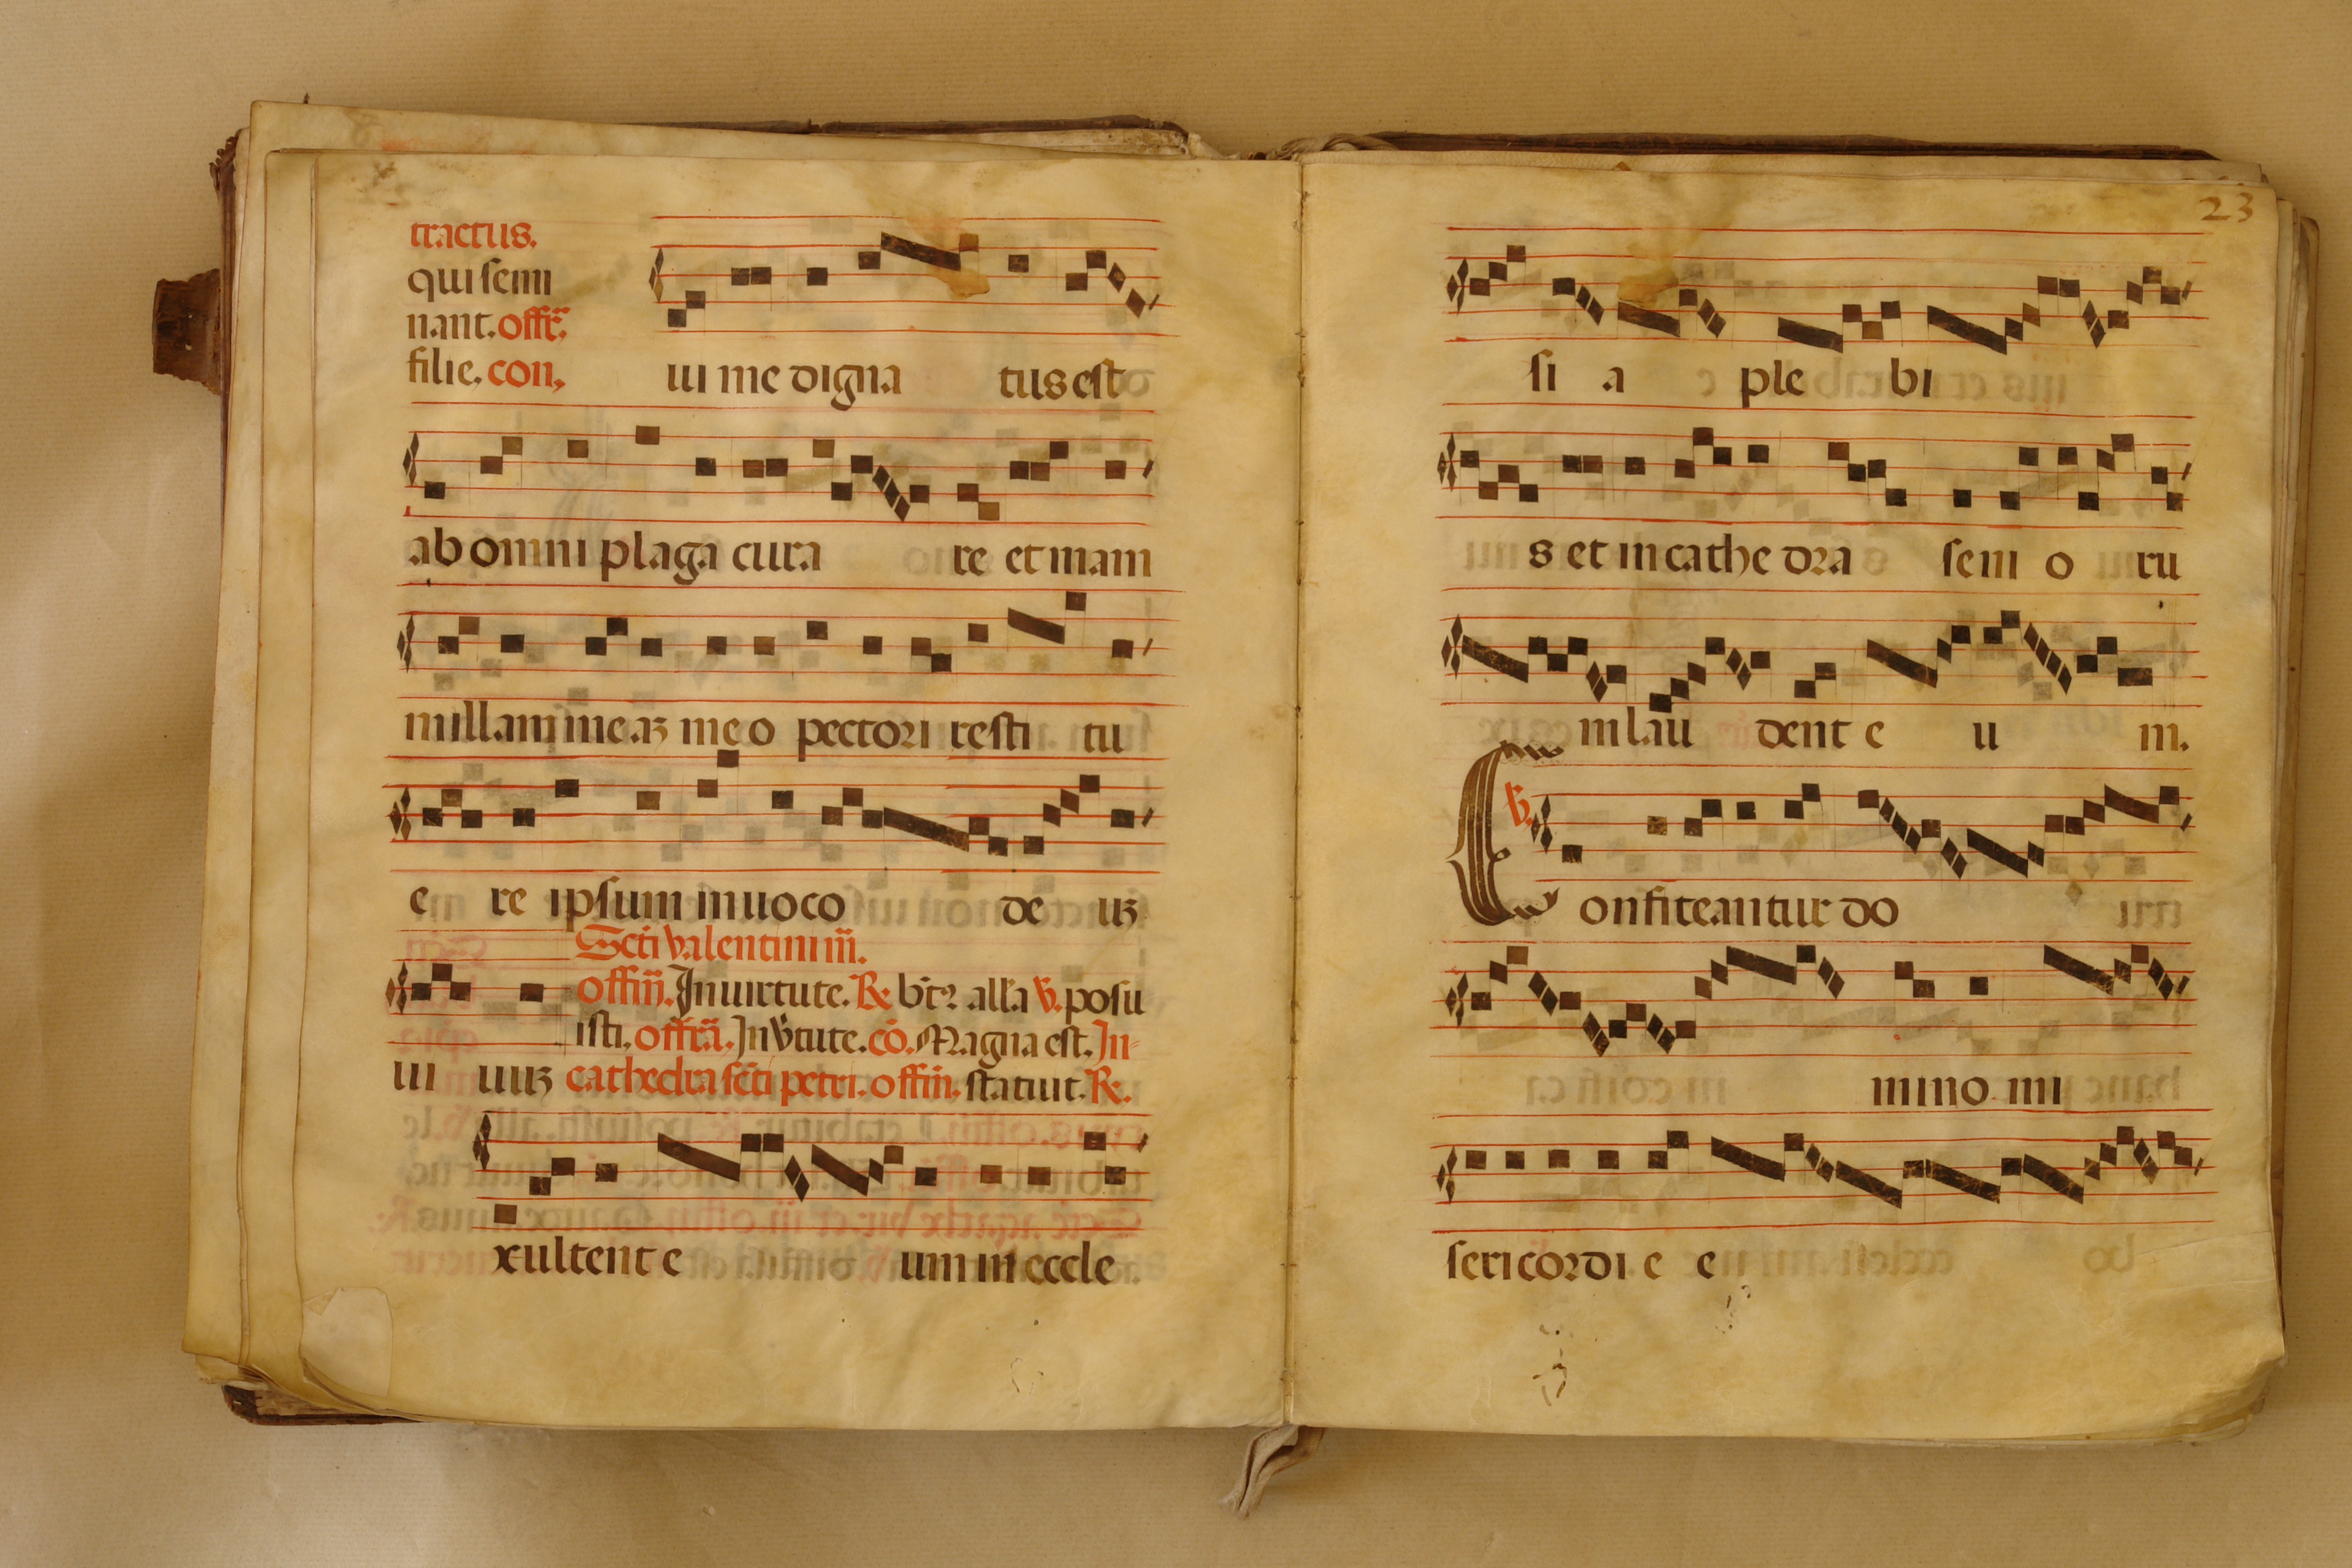 tractus.
qui semi
nant. offr̄.
filie. con,
ui me digna tus est
ab omni plaga cura re et mam
millam meaʒ meo pectori resti tu
e re ipsum inuoco de uʒ
Sc̄ti valentini m̄.
offiu̅. In uirtute. R. bt̄ꝰ all̄a v. posu
isti. offr̄a. In v̄tute. cō. Magna est. In-
ui uuʒ cathedra sc̄ti petri. offin̄. statuit. R.
xultent e um in eccle
23
si a ple bi
s et in cathe dra seni o ru
m lau dent e u m.
v.
Confiteantur do
mino mi
sericordi e e